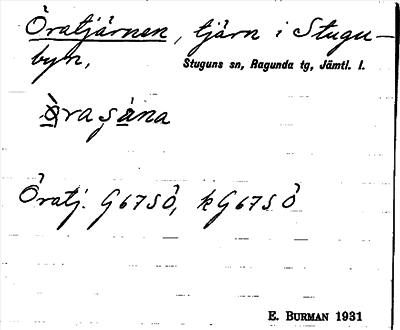 Öratjärnen, tjärn i Stugu-
byn,
Stuguns sn, Ragunda tg, Jämtl. l.
òraşäna
Öratj. G67SÖ, kG67SÖ
E. BURMAN 1931